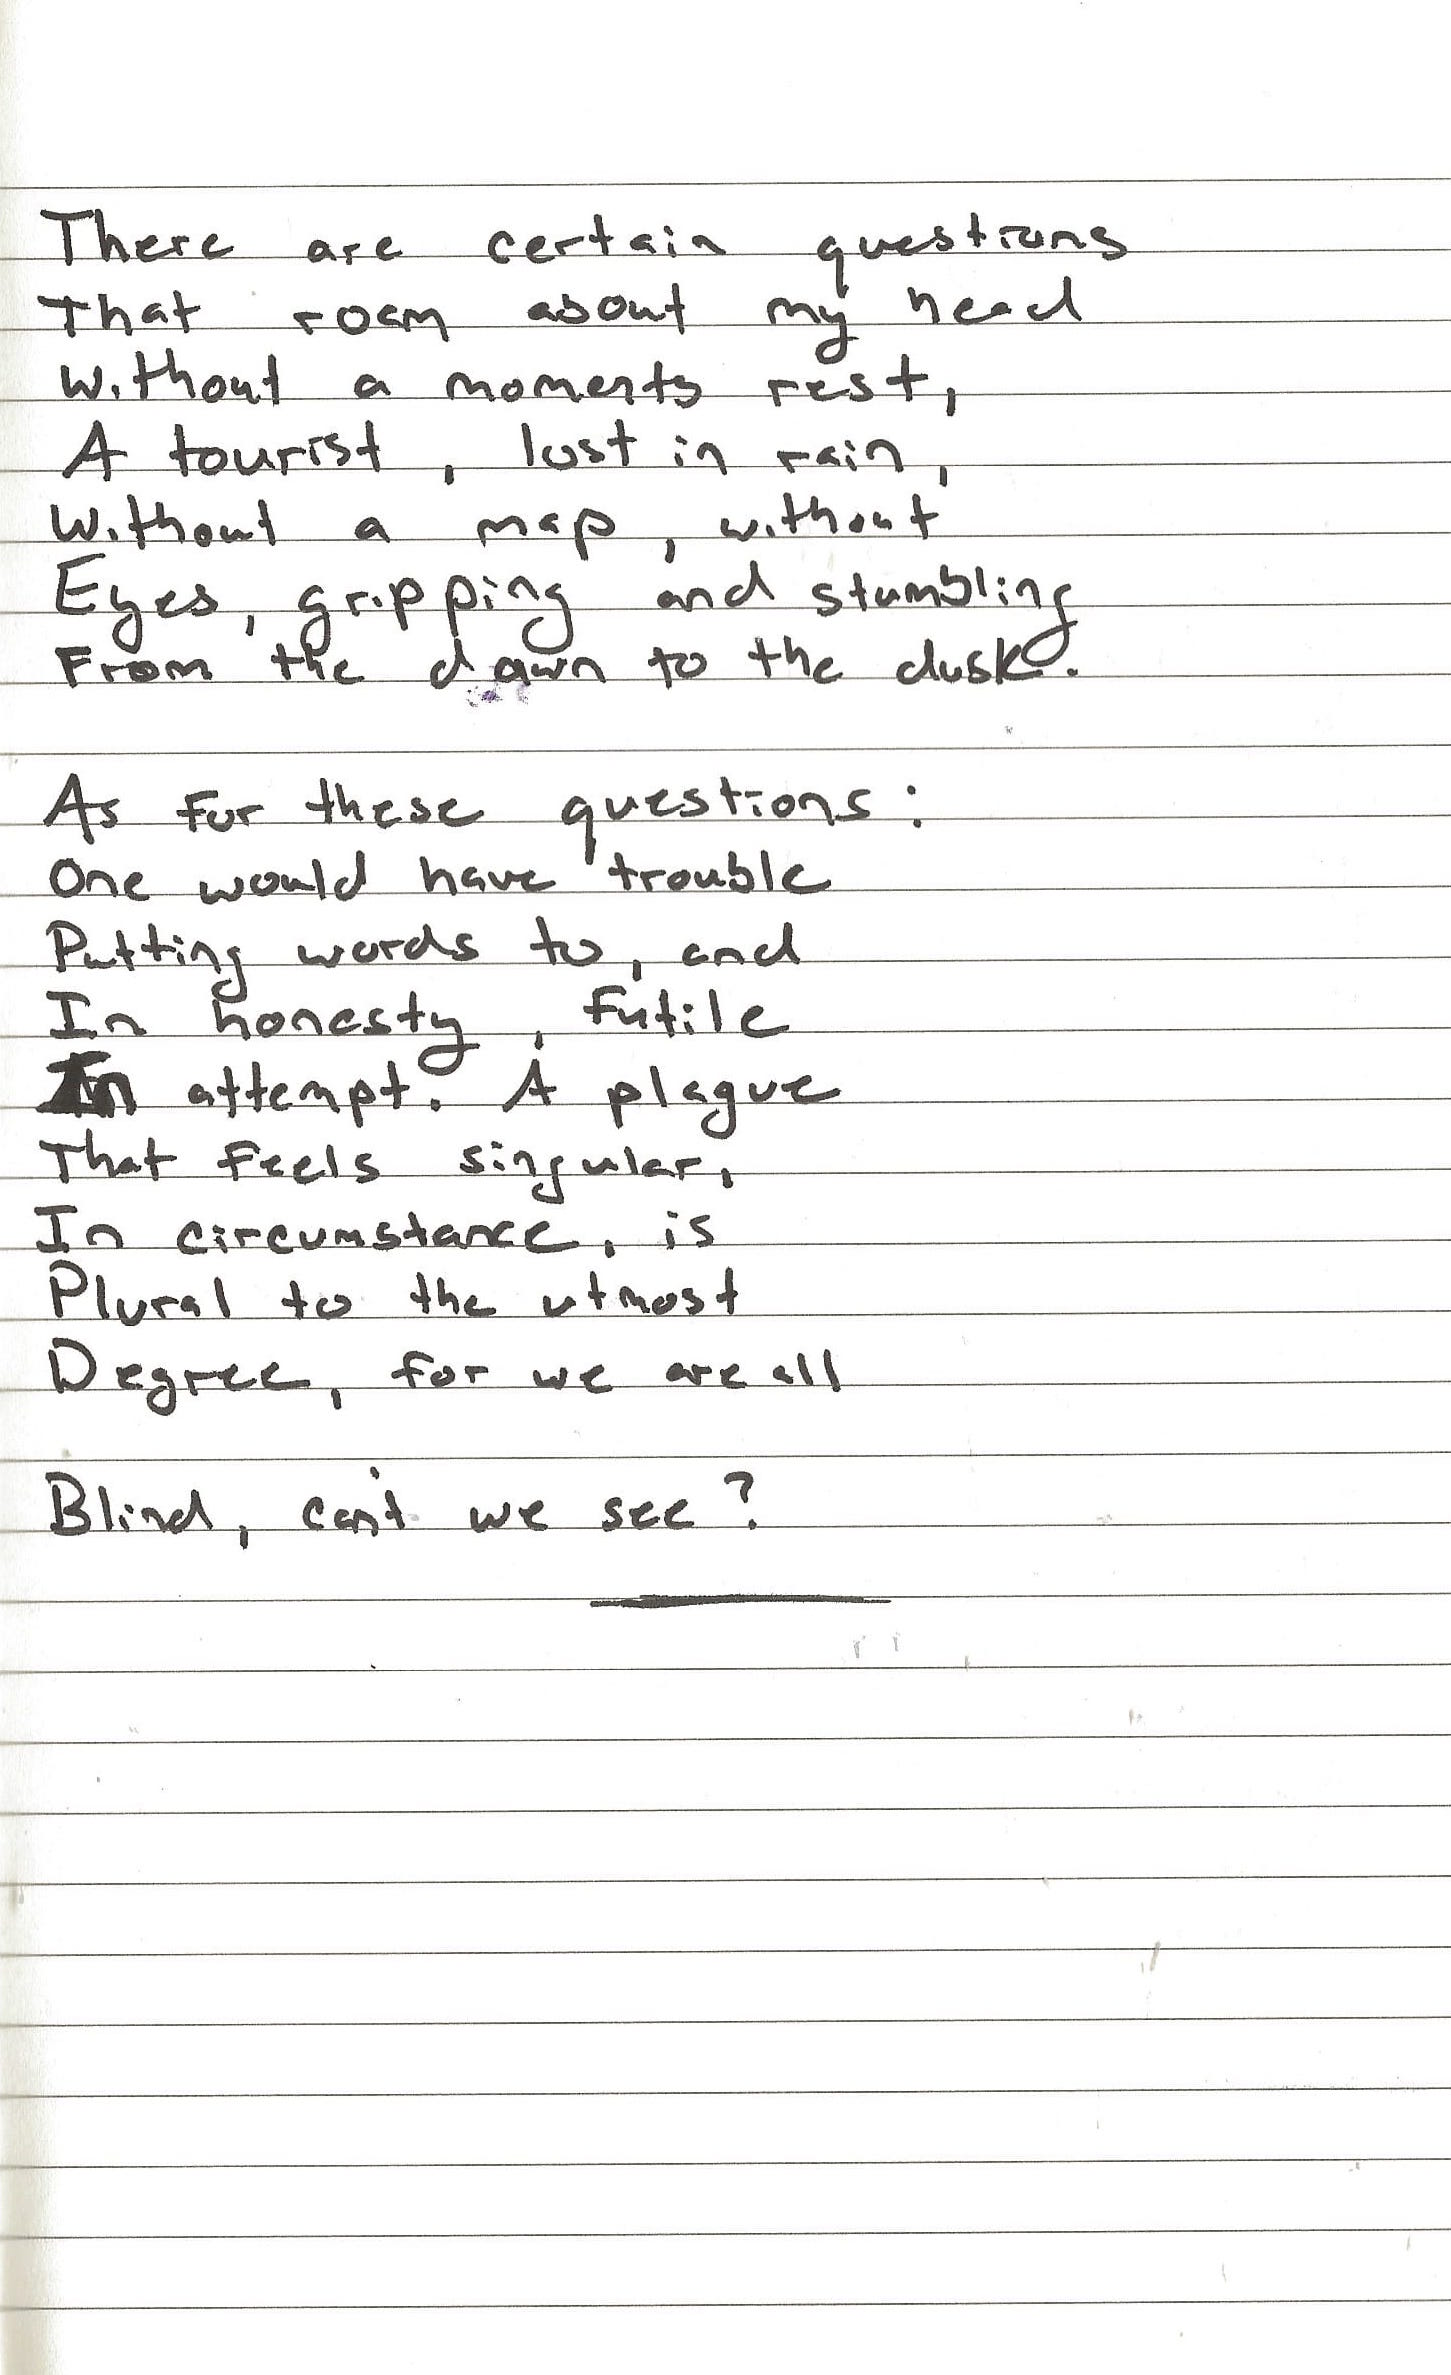 There are certain questions
That roam about my head
Without a moments rest,
A tourist, lost in rain,
Without a map, without
Eyes, gripping and stumbling
From the dawn to the dusk.
As for these questions:
One would have trouble
Putting words to, and
In honesty, futile
In attempt. A plague
That feels singular,
In circumstance, is
Plural to the utmost
Degree, for we are all
Blind, can't we see?